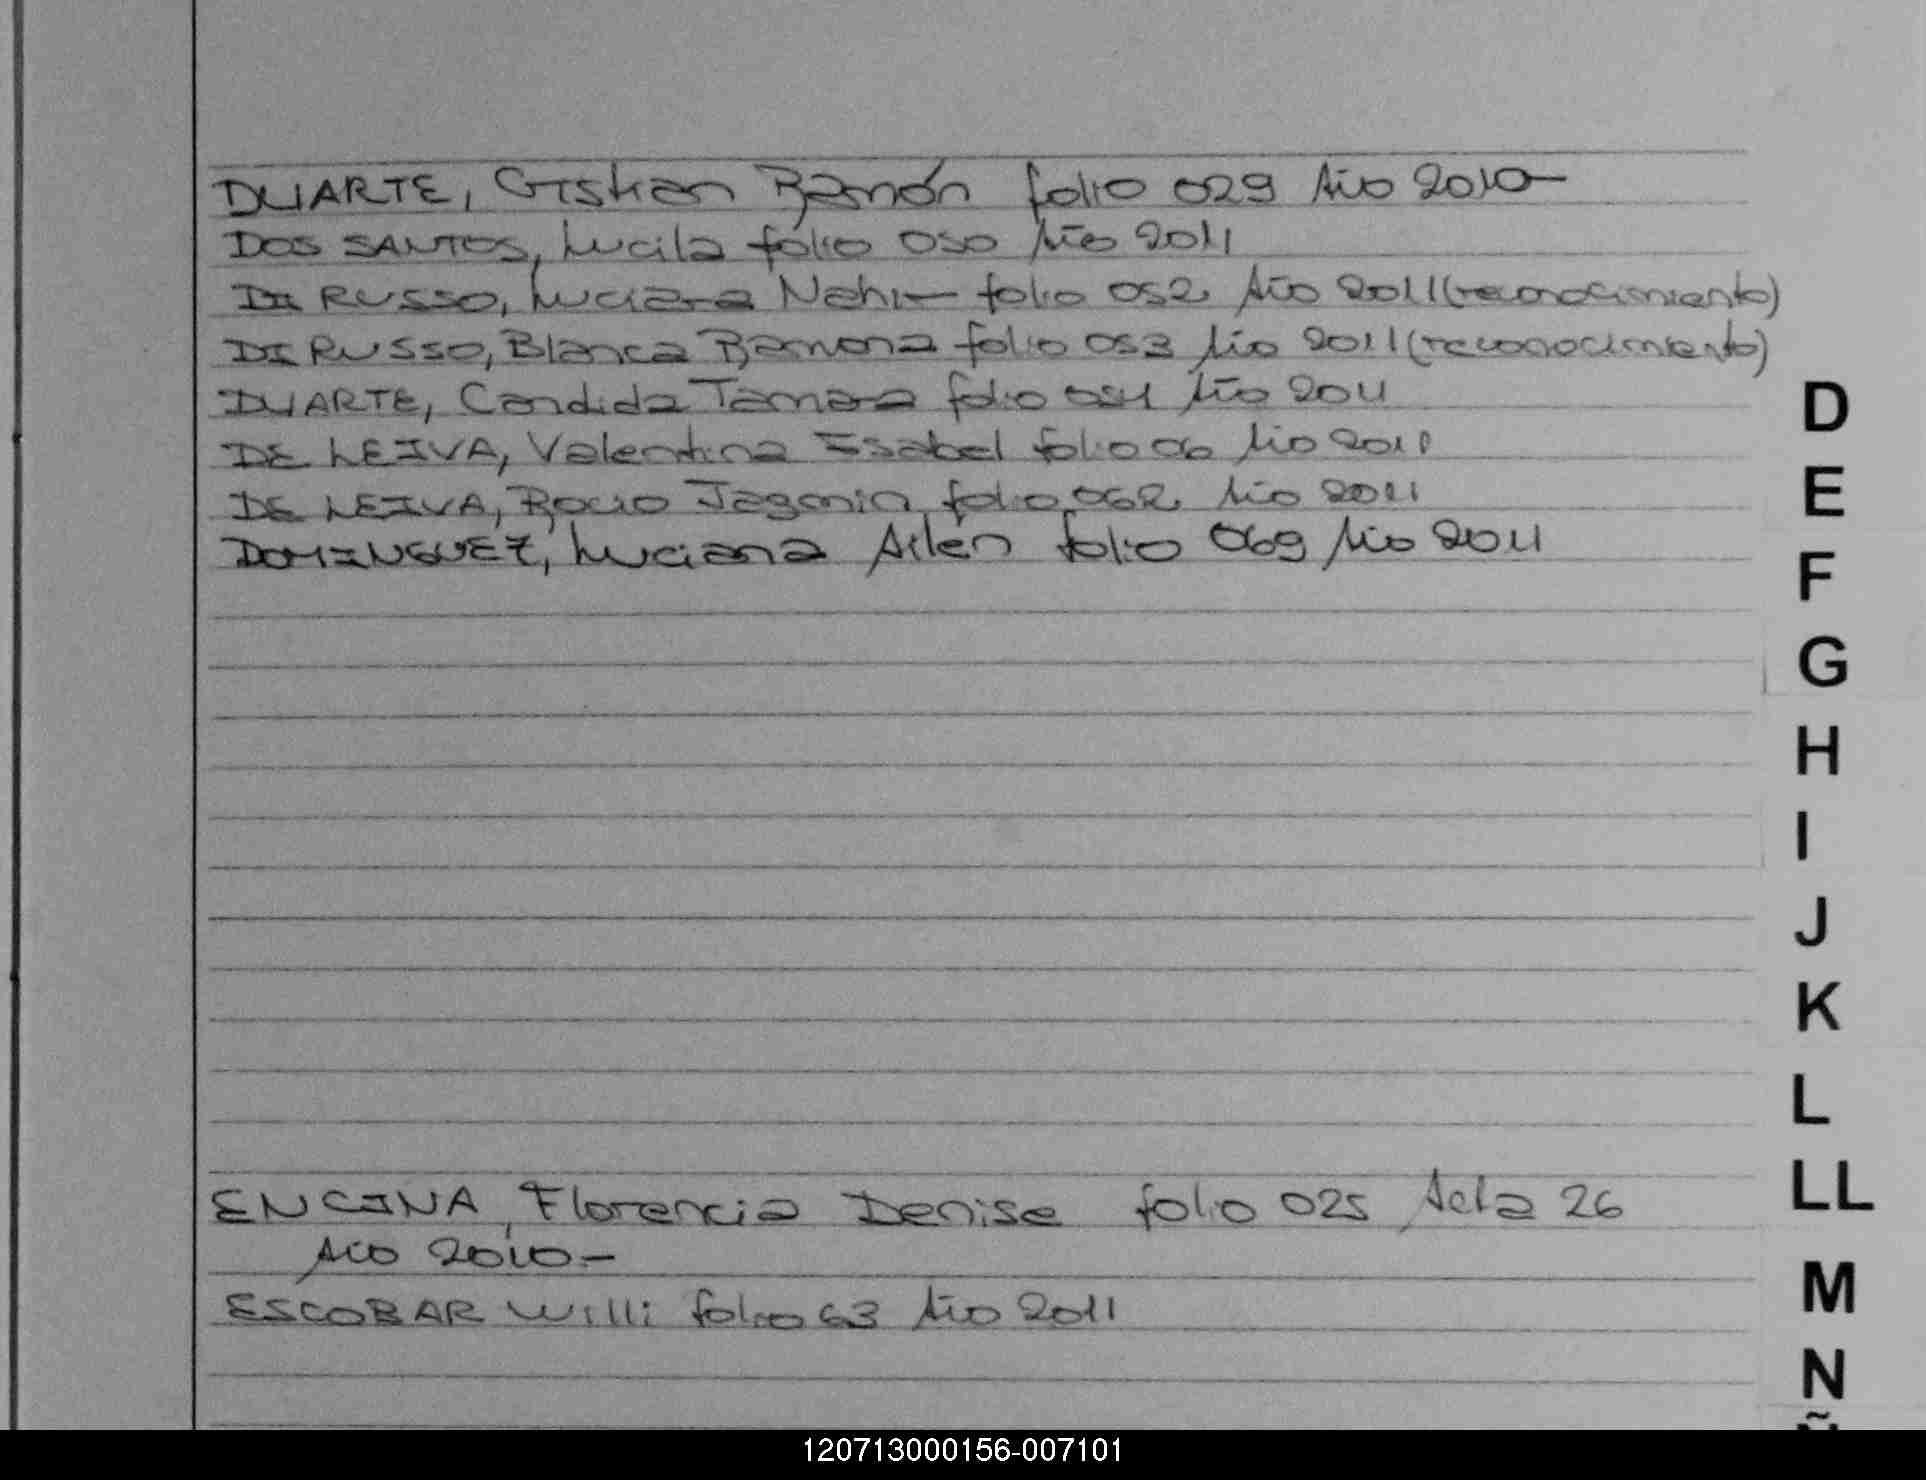 DUARTE, Cristian Ramón folio 029 Año 2010-
DOS SANTOS, Lucila folio 050 Año 2011
DI RUSSO, Luciana Nahir folio 052 Año 2011 (reconocimiento)
DI RUSSO, Blanca Ramona folio 053 Año 2011 (reconocimiento)
DUARTE, Candida Tamara folio 054 Año 2011
DE LEIVA, Valentina Isabel folio 06 Año 2011
DE LEIVA, Rocio Jazmin folio 062 Año 2011
DOMINGUEZ, Luciana Ailén folio 069 Año 2011
ENCINA, Florencia Denise folio 025 Acta 26
Año 2010-
ESCOBAR Willi folio 63 Año 2011
D
E
F
G
H
I
J
K
L
LL
M
N
120713000156-007101